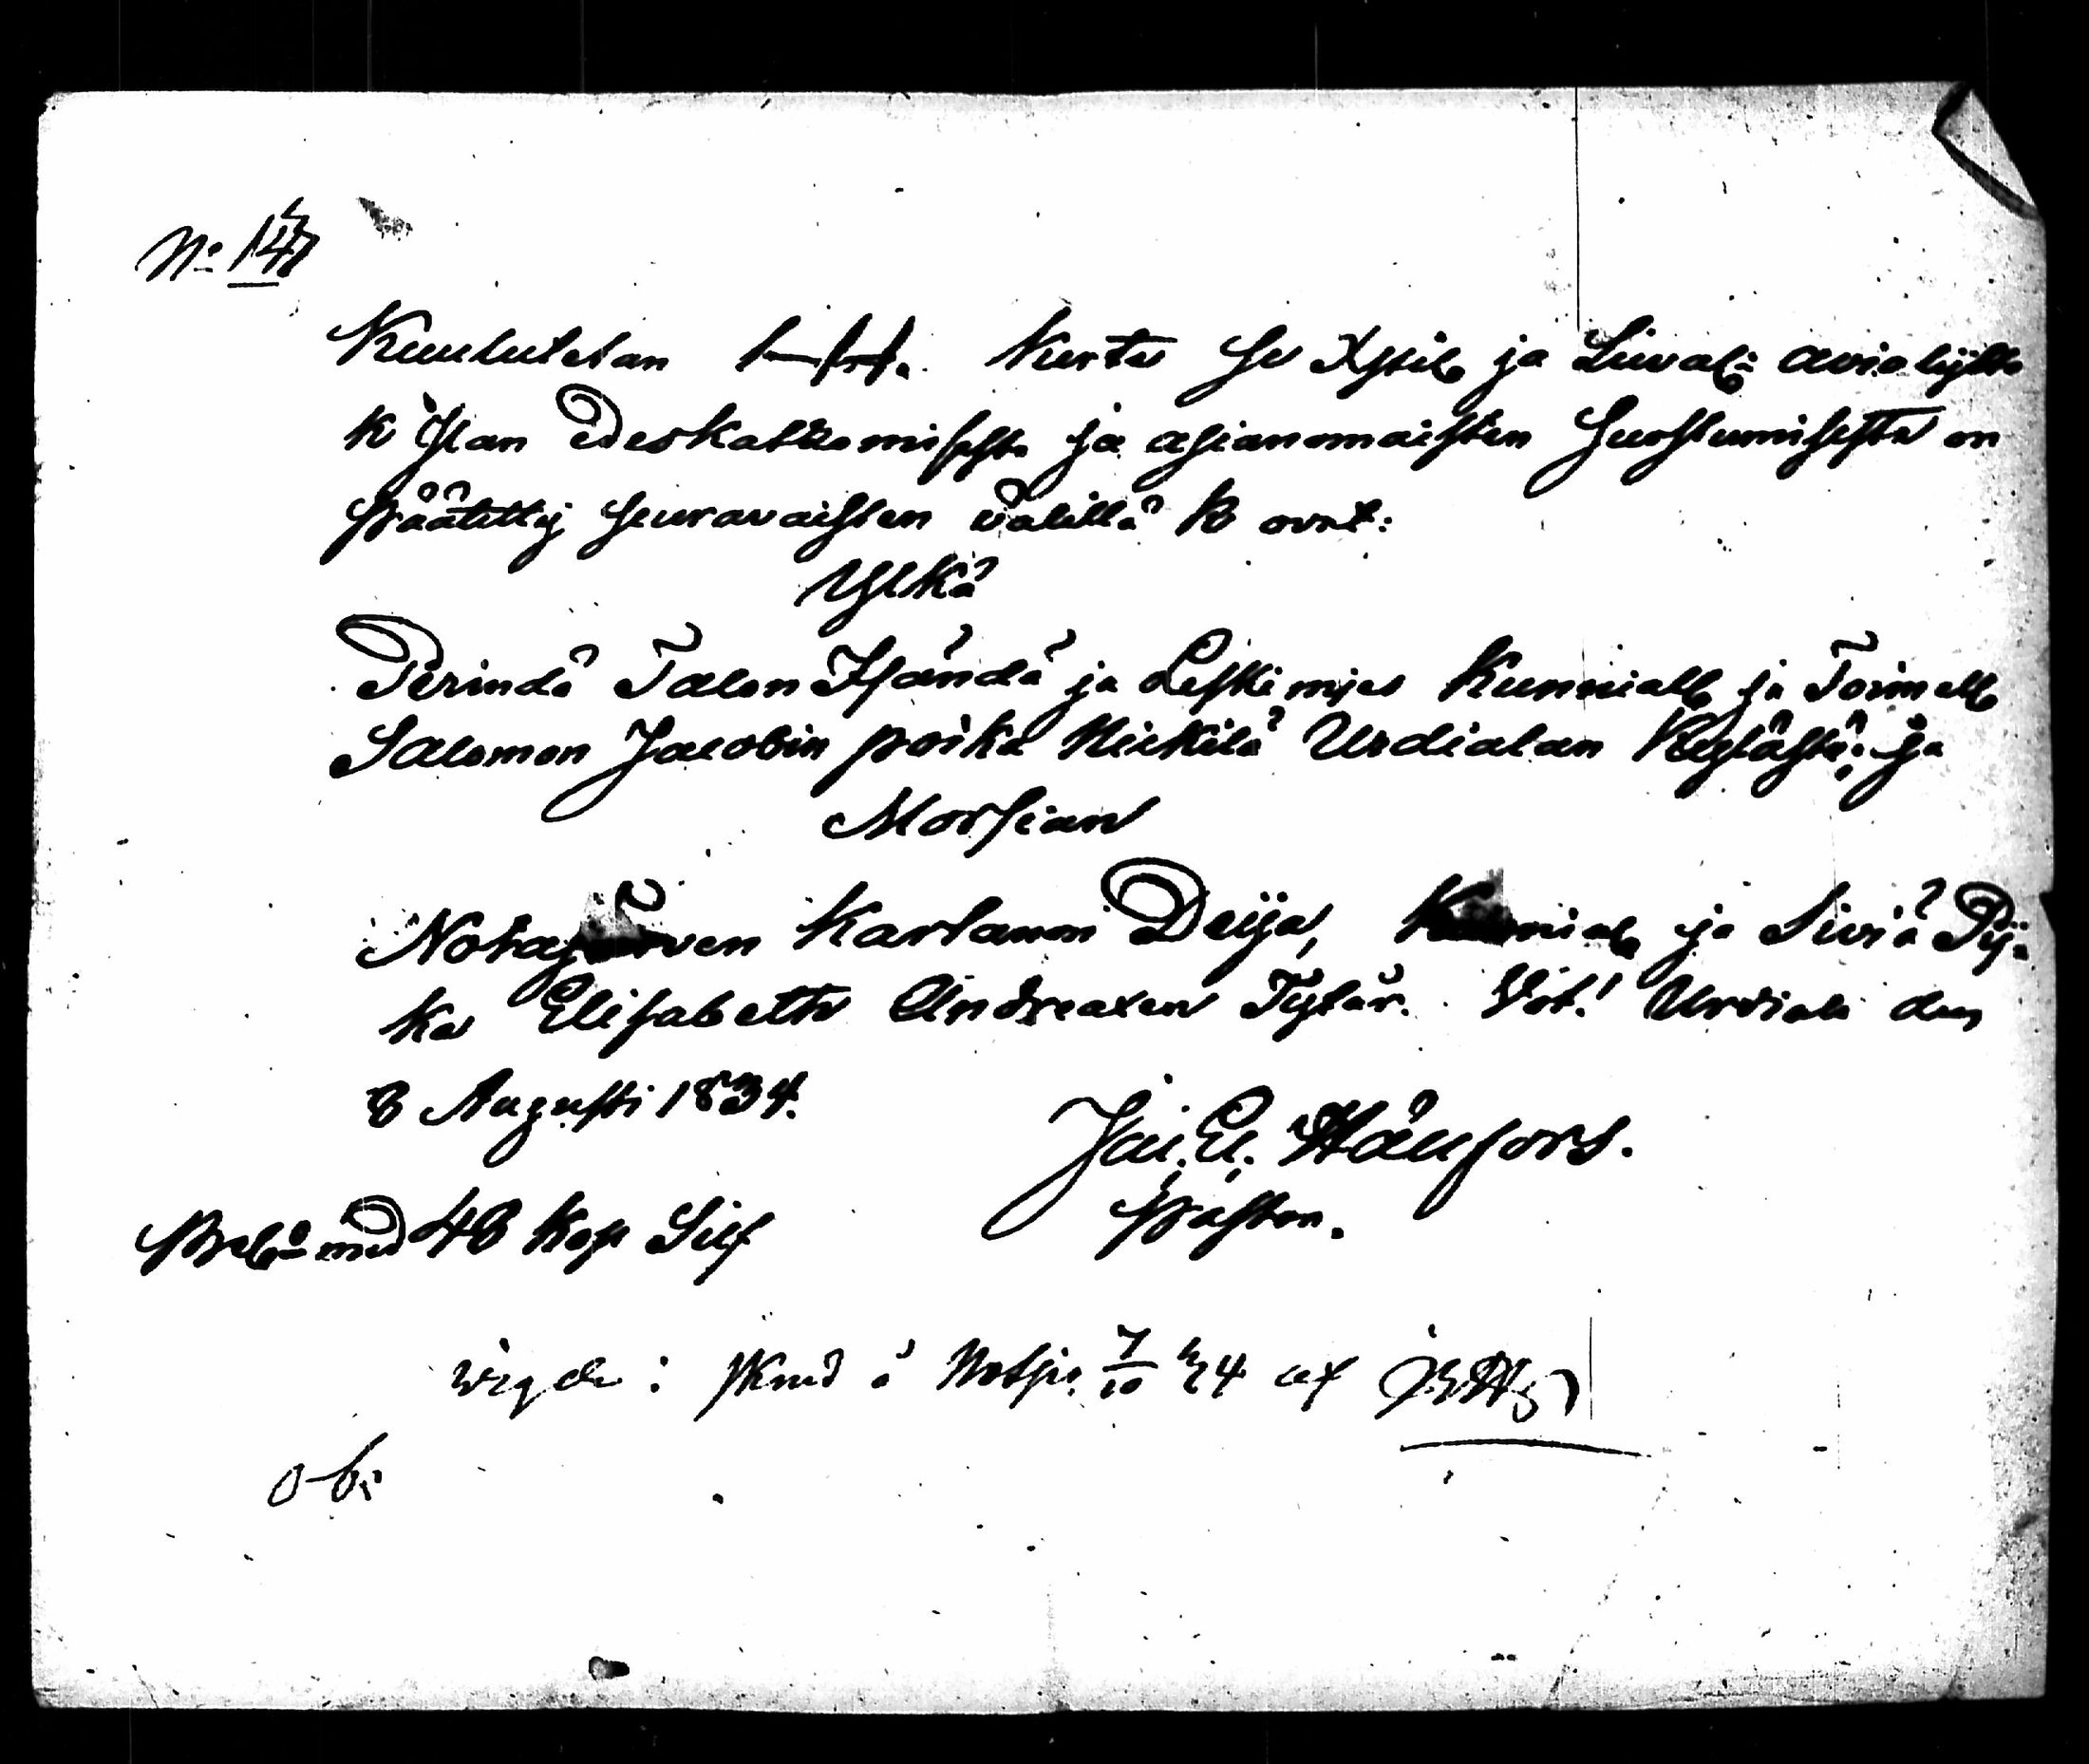 No 147
Kuulutetan kerta se Xstil ja Luval: aviokijtto
k Jlan Edeskatzomisesta ja asianomaisten Suostumisesta on
päätetty seuravaisten välillä k ovat:
Ylkä
Perindö Talon Isändä ja Leskimjes kunniall ja Toimell
Salomon Jacobin poika Mickilä Urdialan Kylästä; ja
Morsian
Notasjärven Kartanon Deija, Kunniall ja Siviä Pij-
ka Elisabeth Andreaxen Tytär. Vit! Urdiala den
8 Augusti 1834.
Jac. E. Häufors.
Pastor.
med 48 kop Silf
Vigde: å Notsjö 7/10 34 af